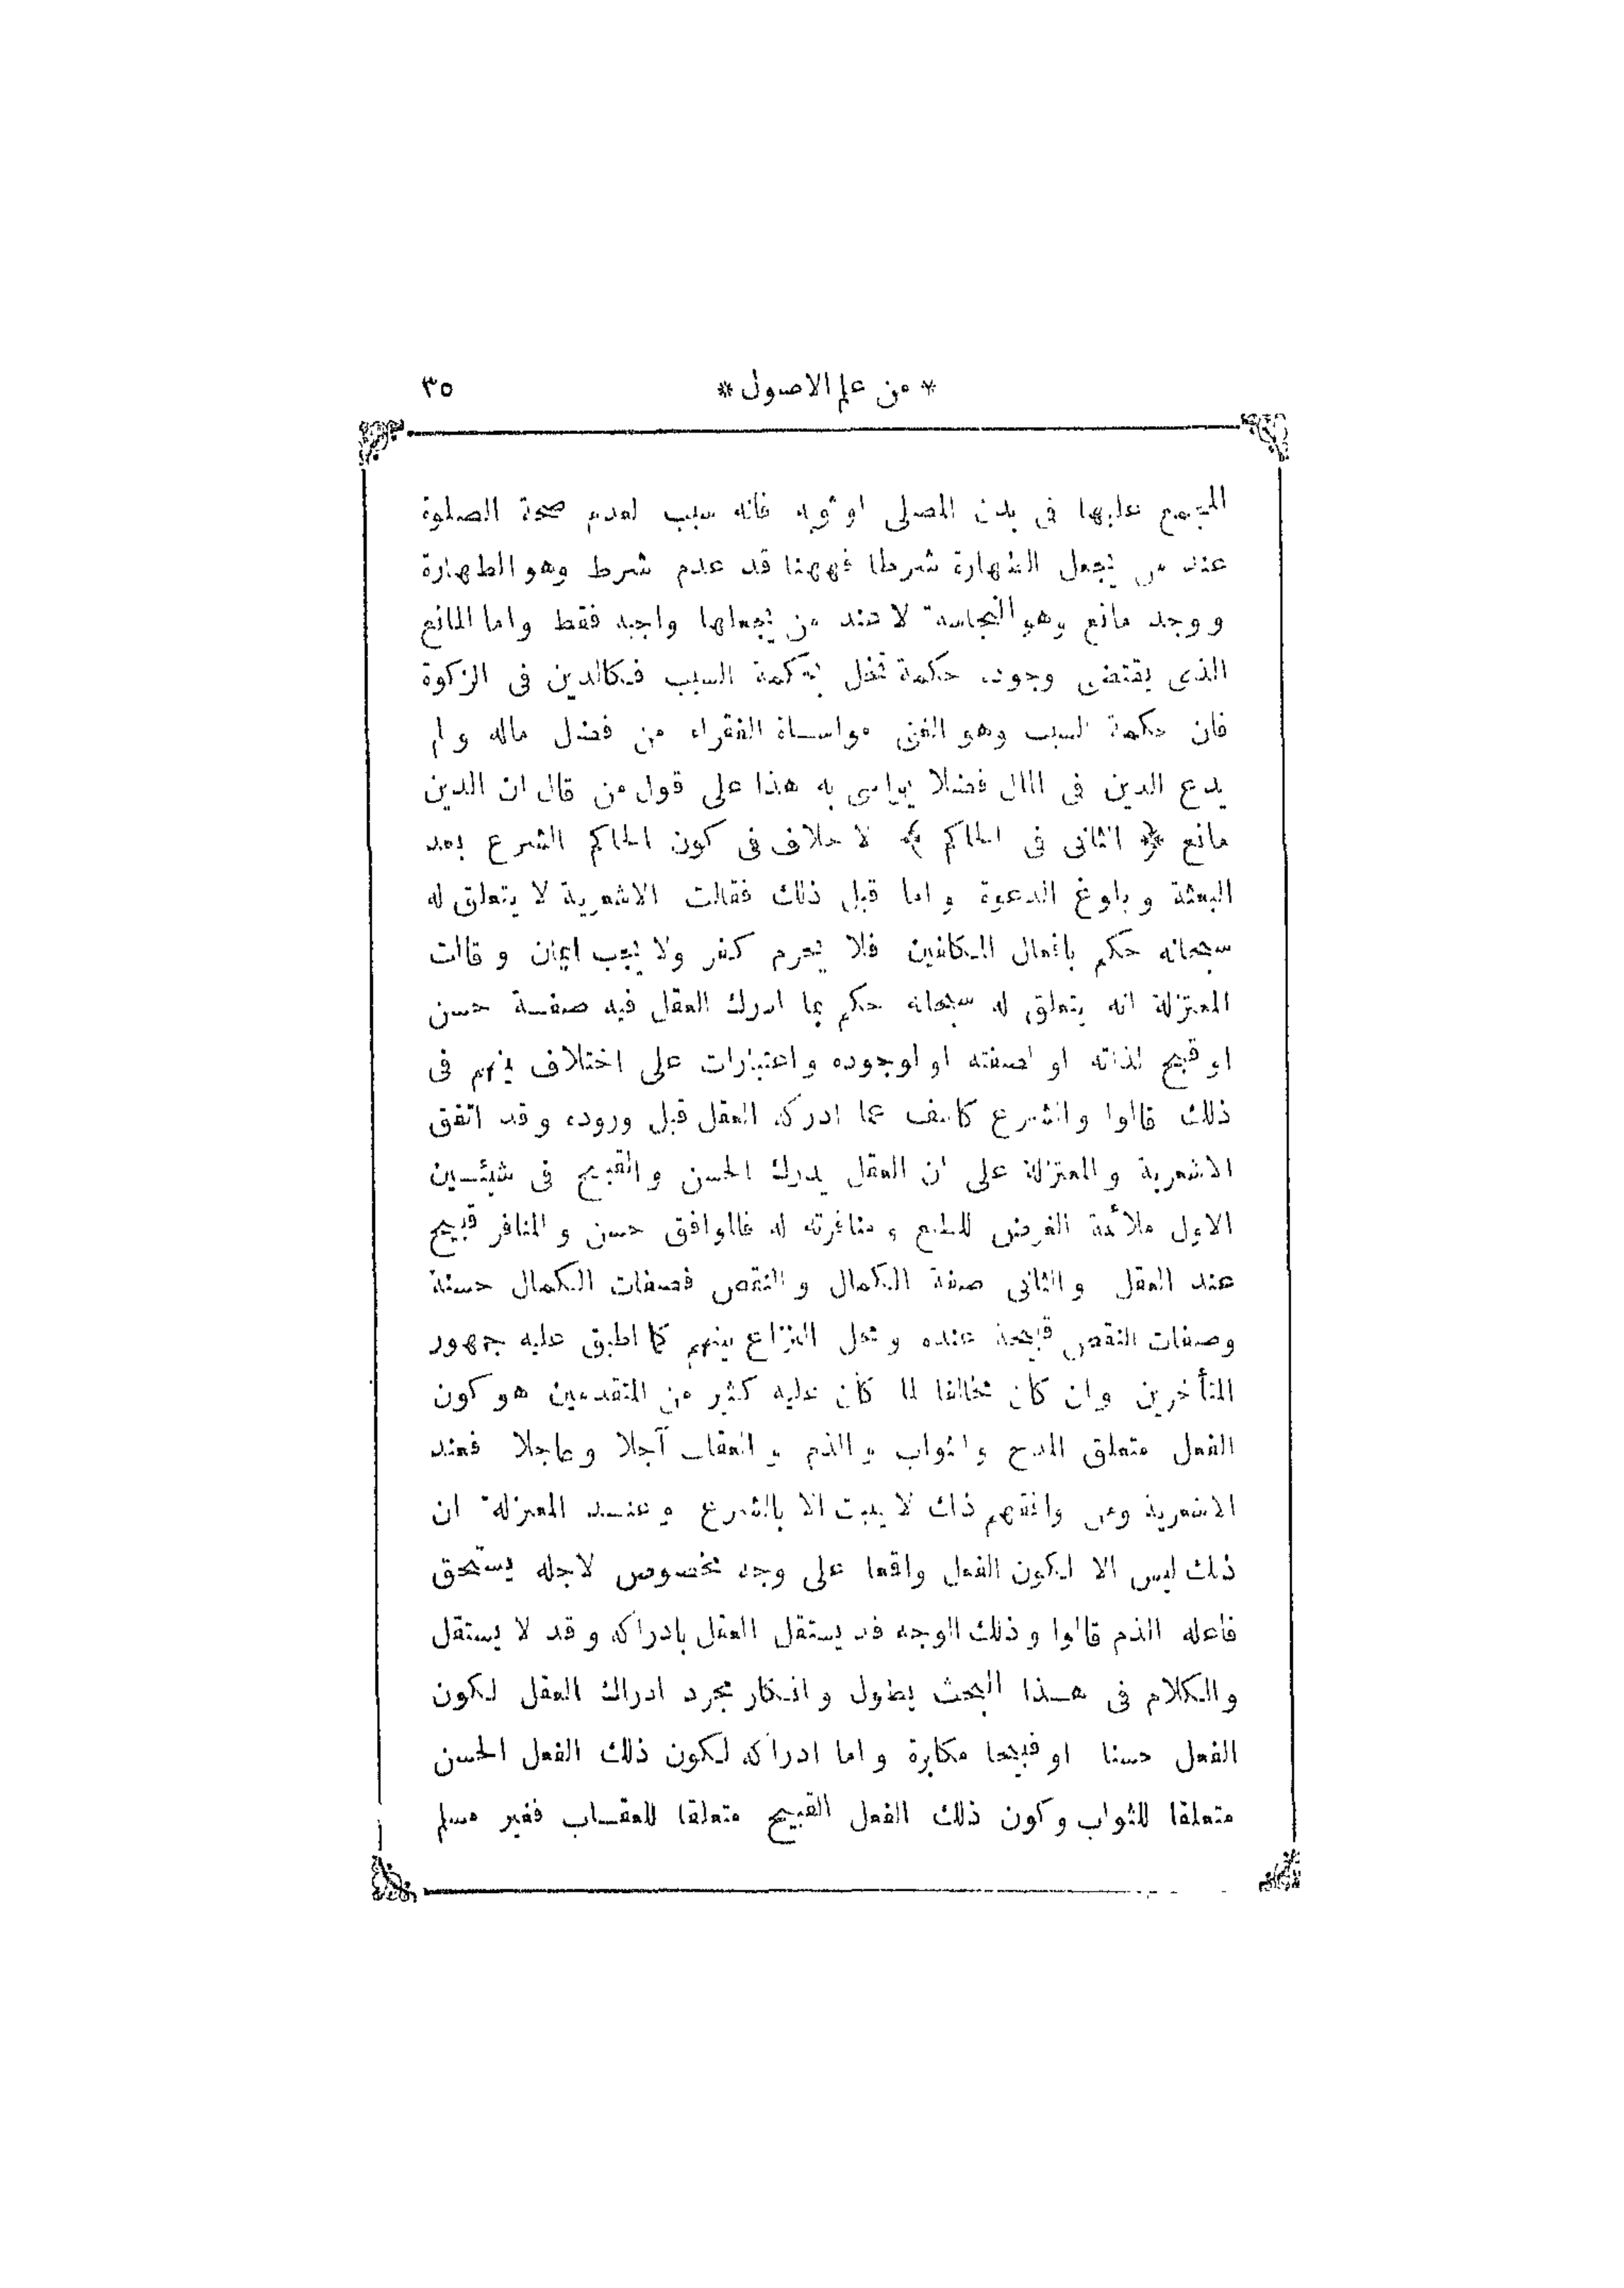 * من علم الاصول * ٣٥
المجمع عليها فى بدن المصلى او ثوبه فانه سبب لعدم صحة الصلوة
عند من يجعل الطهارة شرطا فههنا قد عدم شرط وهو الطهارة
ووجد مانع وهو النجاسة لا عند من يجعلها واجبه فقط واما المانع
الذى يقتضى وجوده حكمة تخل بحكمة السبب فكالدين فى الزكوة
فان حكمة السبب وهو الغنى مواساة الفقراء من فضل ماله ولم
يدع الدين فى المال فضلا يواسى به هذا على قول من قال ان الدين
مانع ﴿ الثانى فى الحاكم ﴾ لا خلاف فى كون الحاكم الشرع بعد
البعثة وبلوغ الدعوة واما قبل ذلك فقالت الاشعرية لا يتعلق له
سبحانه حكم بافعال المكلفين فلا يحرم كفر ولا يجب ايمان وقالت
المعتزلة انه يتعلق له سبحانه حكم بما ادرك العقل فيه صفة حسن
او قبيح لذاته او لصفته او لوجوده واعتبارات على اختلاف بينهم فى
ذلك قالوا والشرع كاشف عما ادركه العقل قبل وروده وقد اتفق
الاشعرية والمعتزلة على ان العقل يدرك الحسن والقبيح فى شيئين
الاول ملائمة الغرض للطبع ومنافرته له فالموافق حسن والمنافر قبيح
عند العقل والثانى صفة الكمال والنقص فصفات الكمال حسنة
وصفات النقص قبيحة عنده ومحل النزاع بينهم كما اطبق عليه جمهور
المتأخرين وان كان مخالفا لما كان عليه كثير من المتقدمين هو كون
الفعل متعلق المدح والثواب والذم والعقاب آجلا وعاجلا فعند
الاشعرية ومن وافقهم ذلك لا يثبت الا بالشرع وعند المعتزلة ان
ذلك ليس الا لكون الفعل واقعا على وجه مخصوص لاجله يستحق
فاعله الذم قالوا وذلك الوجه قد يستقل العقل بادراكه وقد لا يستقل
والكلام فى هذا البحث يطول وانكار مجرد ادراك العقل لكون
الفعل حسنا او قبيحا مكابرة واما ادراكه لكون ذلك الفعل الحسن
متعلقا للثواب وكون ذلك الفعل القبيح متعلقا للعقاب فغير مسلم